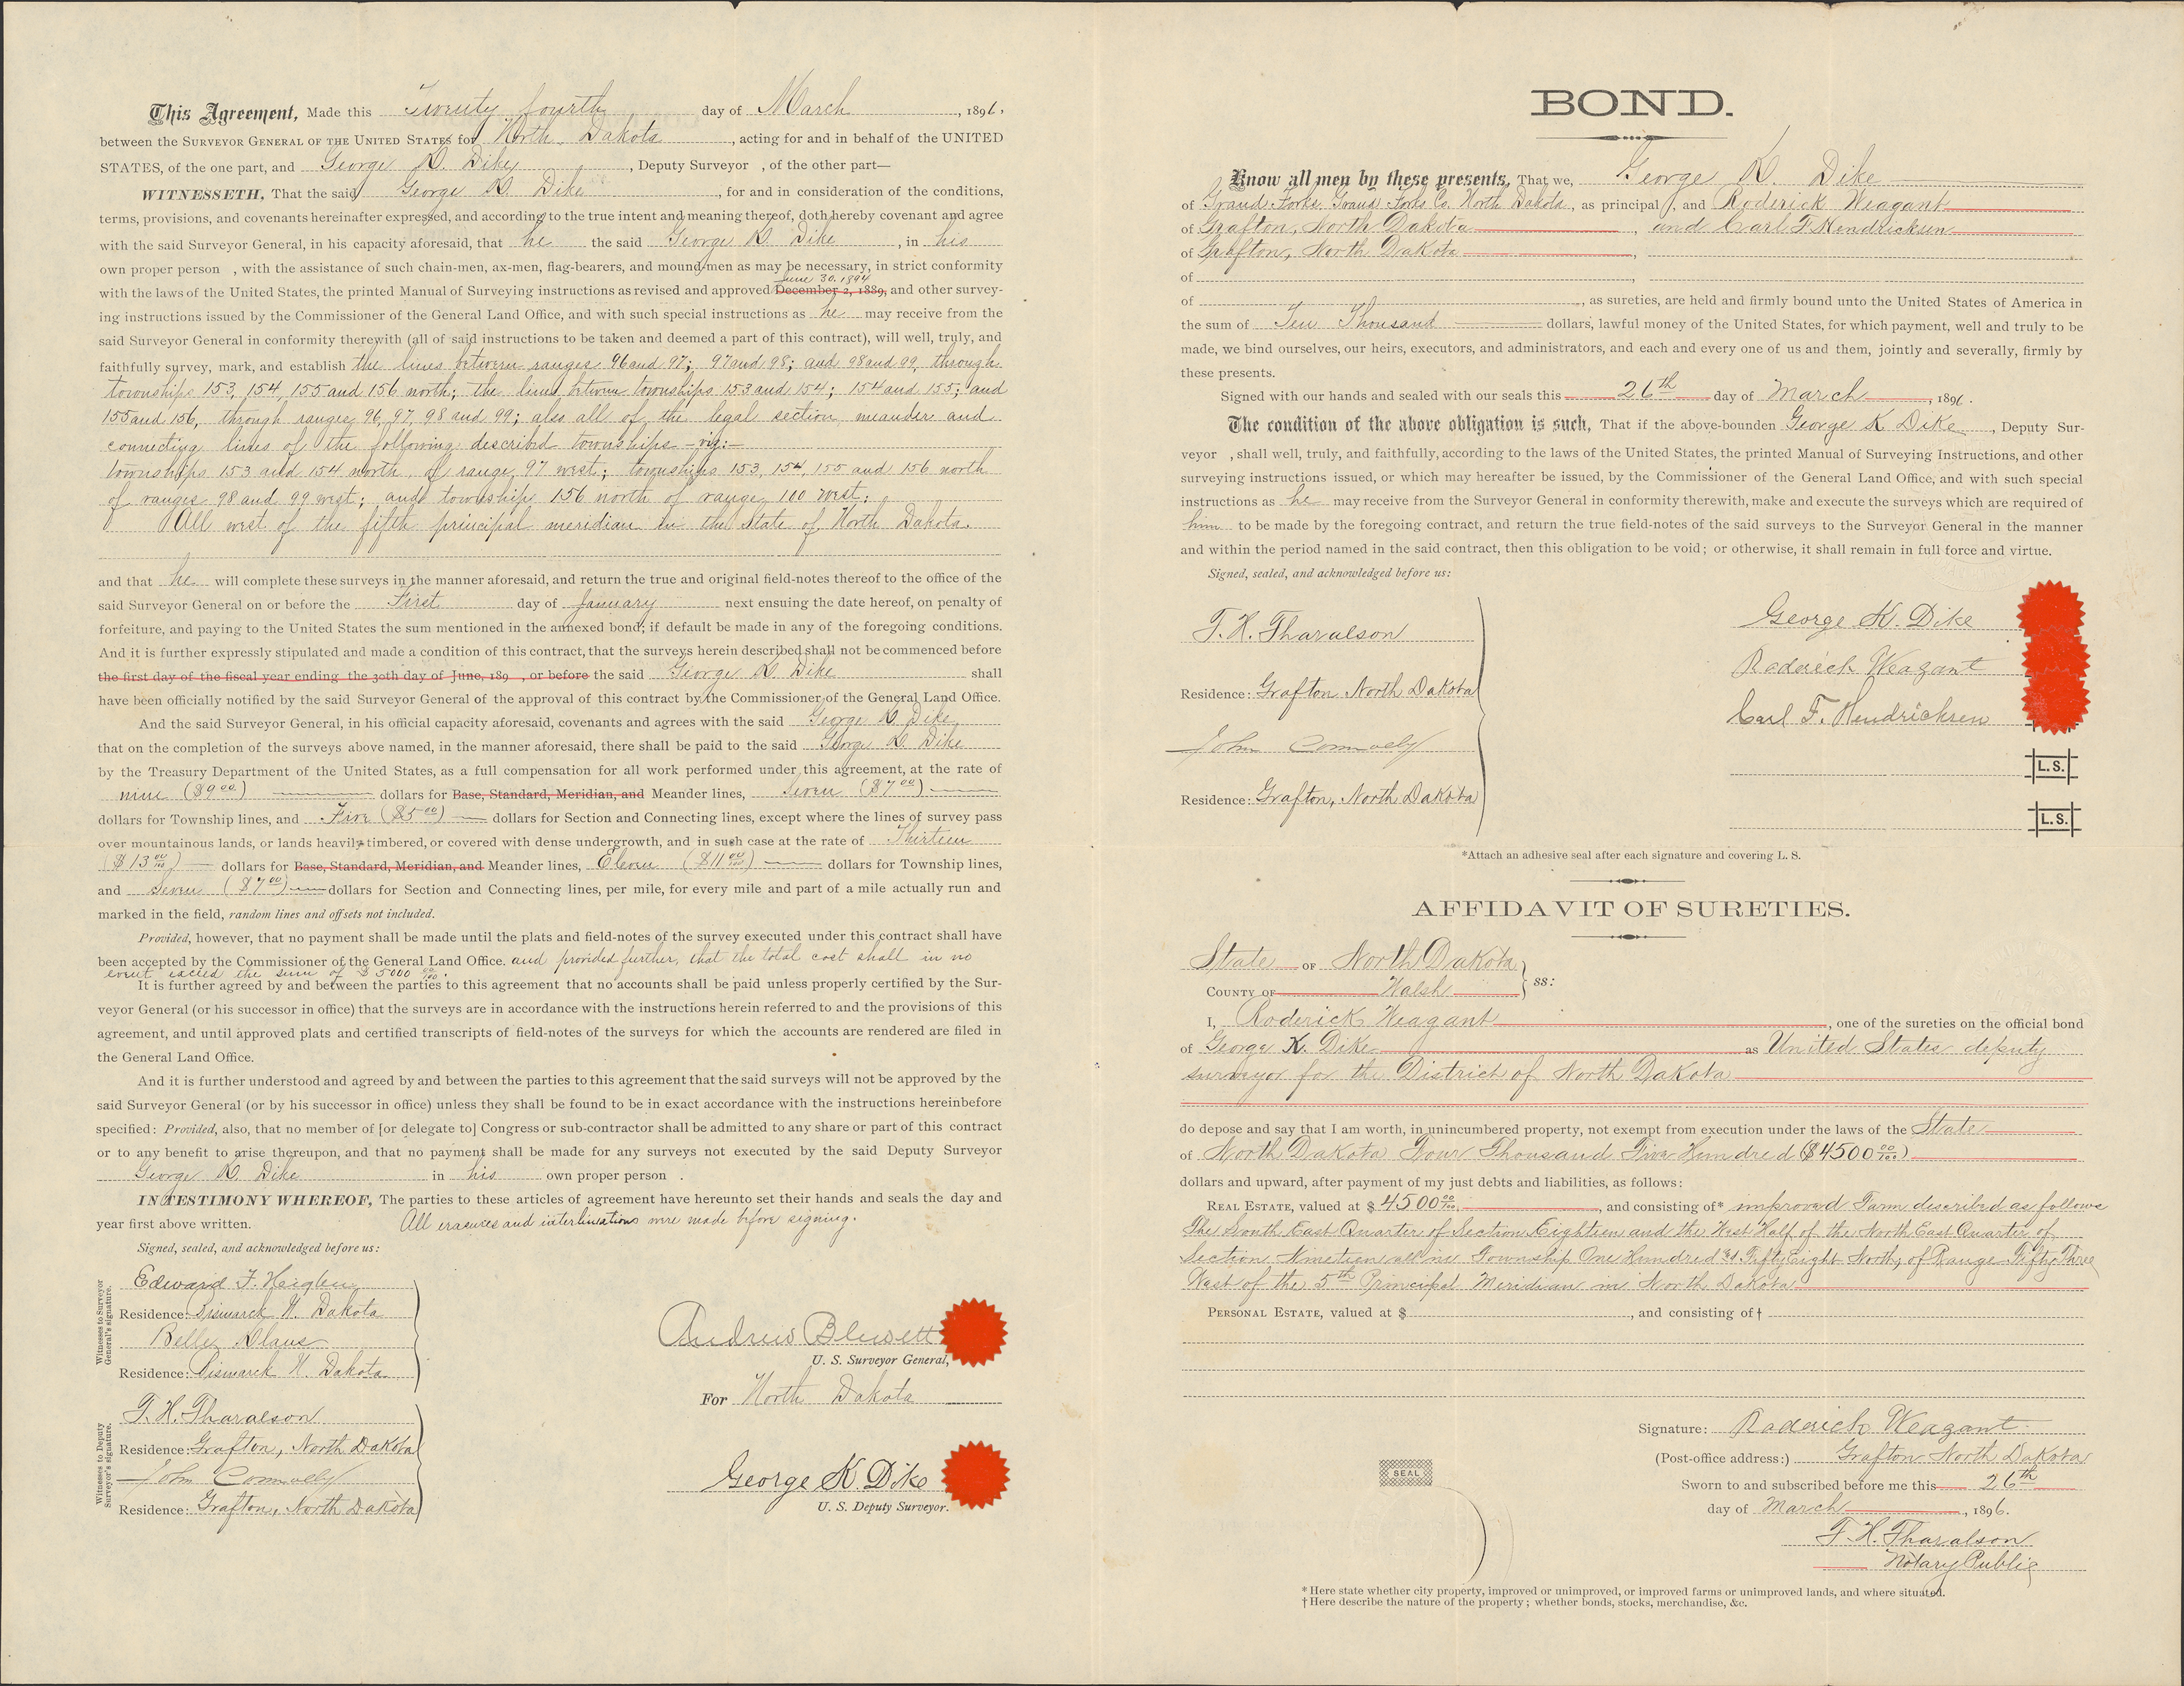 This Agreement, Made this Twenty fourth day of March, 1896,
between the SURVEYOR GENERAL OF THE UNITED STATES for North Dakota, acting for and in behalf of the UNITED
STATES, of the one part, and George K. Dike, Deputy Surveyor , of the other part—
WITNESSETH, That the said George K. Dike, for and in consideration of the conditions,
terms, provisions, and covenants hereinafter expressed, and according to the true intent and meaning thereof, doth hereby covenant and agree
with the said Surveyor General, in his capacity aforesaid, that he the said George K. Dike, in his
own proper person , with the assistance of such chain-men, ax-men, flag-bearers, and mound-men as may be necessary, in strict conformity
June 30. 1894
with the laws of the United States, the printed Manual of Surveying instructions as revised and approved December 2, 1889, and other survey-
ing instructions issued by the Commissioner of the General Land Office, and with such special instructions as he may receive from the
said Surveyor General in conformity therewith (all of said instructions to be taken and deemed a part of this contract), will well, truly, and
faithfully survey, mark, and establish the lines between ranges 96 and 97; 97 and 98; and 98 and 99, through
townships 153, 154, 155 and 156 north; the lines between townships 153 and 154; 154 and 155; and
155 and 156, through ranges 96, 97, 98 and 99; also all of the legal section meander and
connecting lines of the following described townships - viz:-
townships 153 and 154 north, of range 97 west; townships 153, 154, 155 and 156 north
of ranges 98 and 99 west; and township 156 north of range 100 west;
All west of the fifth principal meridian in the State of North Dakota.
and that he will complete these surveys in the manner aforesaid, and return the true and original field-notes thereof to the office of the
said Surveyor General on or before the First day of January next ensuing the date hereof, on penalty of
forfeiture, and paying to the United States the sum mentioned in the annexed bond, if default be made in any of the foregoing conditions.
And it is further expressly stipulated and made a condition of this contract, that the surveys herein described shall not be commenced before
the first day of the fiscal year ending the 30th day of June, 189 , or before the said George K. Dike shall
have been officially notified by the said Surveyor General of the approval of this contract by the Commissioner of the General Land Office.
And the said Surveyor General, in his official capacity aforesaid, covenants and agrees with the said George K. Dike,
that on the completion of the surveys above named, in the manner aforesaid, there shall be paid to the said George K. Dike
by the Treasury Department of the United States, as a full compensation for all work performed under this agreement, at the rate of
nine ($9 00) dollars for Base, Standard, Meridian, and Meander lines, seven ($7 00)
dollars for Township lines, and Five ($5 00) dollars for Section and Connecting lines, except where the lines of survey pass
over mountainous lands, or lands heavily timbered, or covered with dense undergrowth, and in such case at the rate of Thirteen
($13 00/100) dollars for Base, Standard, Meridian, and Meander lines, Eleven ($11 00/100) dollars for Township lines,
and seven ($7 00) dollars for Section and Connecting lines, per mile, for every mile and part of a mile actually run and
marked in the field, random lines and offsets not included.
Provided, however, that no payment shall be made until the plats and field-notes of the survey executed under this contract shall have
been accepted by the Commissioner of the General Land Office. and provided further, that the total cost shall in no
event exceed the sum of $5000 00/100.
It is further agreed by and between the parties to this agreement that no accounts shall be paid unless properly certified by the Sur-
veyor General (or his successor in office) that the surveys are in accordance with the instructions herein referred to and the provisions of this
agreement, and until approved plats and certified transcripts of field-notes of the surveys for which the accounts are rendered are filed in
the General Land Office.
And it is further understood and agreed by and between the parties to this agreement that the said surveys will not be approved by the
said Surveyor General (or by his successor in office) unless they shall be found to be in exact accordance with the instructions hereinbefore
specified: Provided, also, that no member of [or delegate to] Congress or sub-contractor shall be admitted to any share or part of this contract
or to any benefit to arise thereupon, and that no payment shall be made for any surveys not executed by the said Deputy Surveyor
George K. Dike in his own proper person .
IN TESTIMONY WHEREOF, The parties to these articles of agreement have hereunto set their hands and seals the day and
year first above written. All erasures and interlineations were made before signing.
Signed, sealed, and acknowledged before us:
Witnesses to Surveyor General's signature.
Edward F. Heiglen
Residence: Bismarck N. Dakota
Belle Klaus
Residence: Bismarck N. Dakota
Witnesses to Deputy Surveyor's signature.
T. H. Tharalson
Residence: Grafton, North Dakota
John Connolly
Residence: Grafton, North Dakota
Andrew Blewett
U. S. Surveyor General,
For North Dakota
George K. Dike
U. S. Deputy Surveyor.
BOND.
Know all men by these presents, That we, George K. Dike
of Grand Forks, Grand Forks Co. North Dakota, as principal , and Roderick Weagant
of Grafton, North Dakota, and Carl F. Hendricksen
of Grafton, North Dakota,
of
of , as sureties, are held and firmly bound unto the United States of America in
the sum of Ten Thousand dollars, lawful money of the United States, for which payment, well and truly to be
made, we bind ourselves, our heirs, executors, and administrators, and each and every one of us and them, jointly and severally, firmly by
these presents.
Signed with our hands and sealed with our seals this 26th day of March, 1896.
The condition of the above obligation is such, That if the above-bounden George K Dike, Deputy Sur-
veyor , shall well, truly, and faithfully, according to the laws of the United States, the printed Manual of Surveying Instructions, and other
surveying instructions issued, or which may hereafter be issued, by the Commissioner of the General Land Office, and with such special
instructions as he may receive from the Surveyor General in conformity therewith, make and execute the surveys which are required of
him to be made by the foregoing contract, and return the true field-notes of the said surveys to the Surveyor General in the manner
and within the period named in the said contract, then this obligation to be void; or otherwise, it shall remain in full force and virtue.
Signed, sealed, and acknowledged before us:
T. H. Tharalson
Residence: Grafton North Dakota
John Connolly
Residence: Grafton, North Dakota
George K. Dike
Roderick Weagant
Carl F. Hendricksen
L. S.
L. S.
*Attach an adhesive seal after each signature and covering L. S.
AFFIDAVIT OF SURETIES.
State OF North Dakota
COUNTY OF Walsh ss:
I, Roderick Weagant, one of the sureties on the official bond
of George K. Dike as United States deputy
surveyor for the District of North Dakota
do depose and say that I am worth, in unincumbered property, not exempt from execution under the laws of the State
of North Dakota Four Thousand Five Hundred ($4500 00/100)
dollars and upward, after payment of my just debts and liabilities, as follows:
REAL ESTATE, valued at $4500 00/100, and consisting of* improved Farm described as follows
The South East Quarter of Section Eighteen and the West Half of the North East Quarter of
Section Nineteen all in Township One Hundred & Fifty Eight North, of Range Fifty Three
West of the 5th Principal Meridian in North Dakota
PERSONAL ESTATE, valued at $ , and consisting of†
Signature: Roderick Weagant
(Post-office address:) Grafton North Dakota
Sworn to and subscribed before me this 26th
day of March, 1896.
T. H. Tharalson
Notary Public
SEAL
* Here state whether city property, improved or unimproved, or improved farms or unimproved lands, and where situated.
† Here describe the nature of the property; whether bonds, stocks, merchandise, &c.